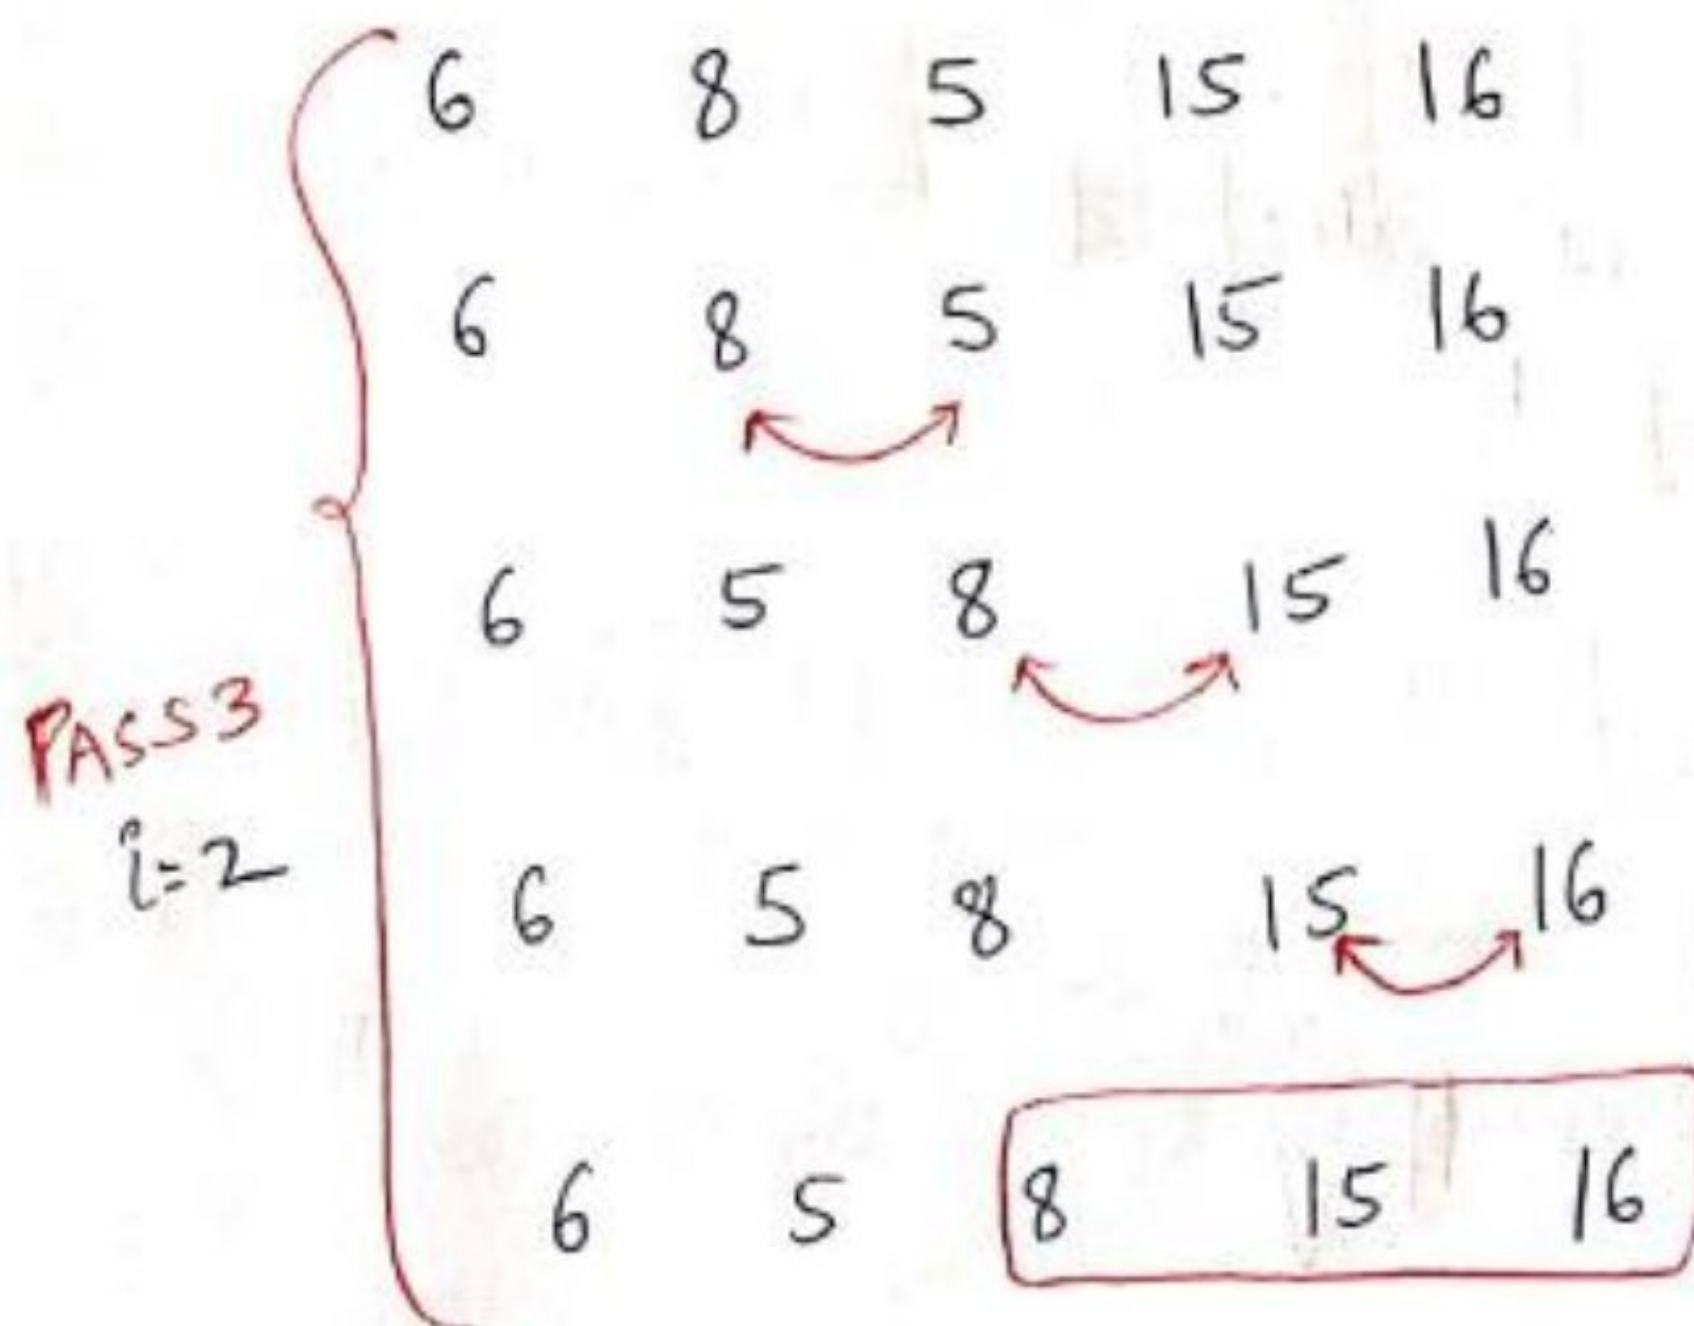 6 8 5 15 16
6 8 5 15 16
6 5 8 15 16
PASS3
i=2
6 5 8 15 16
6 5 8 15 16